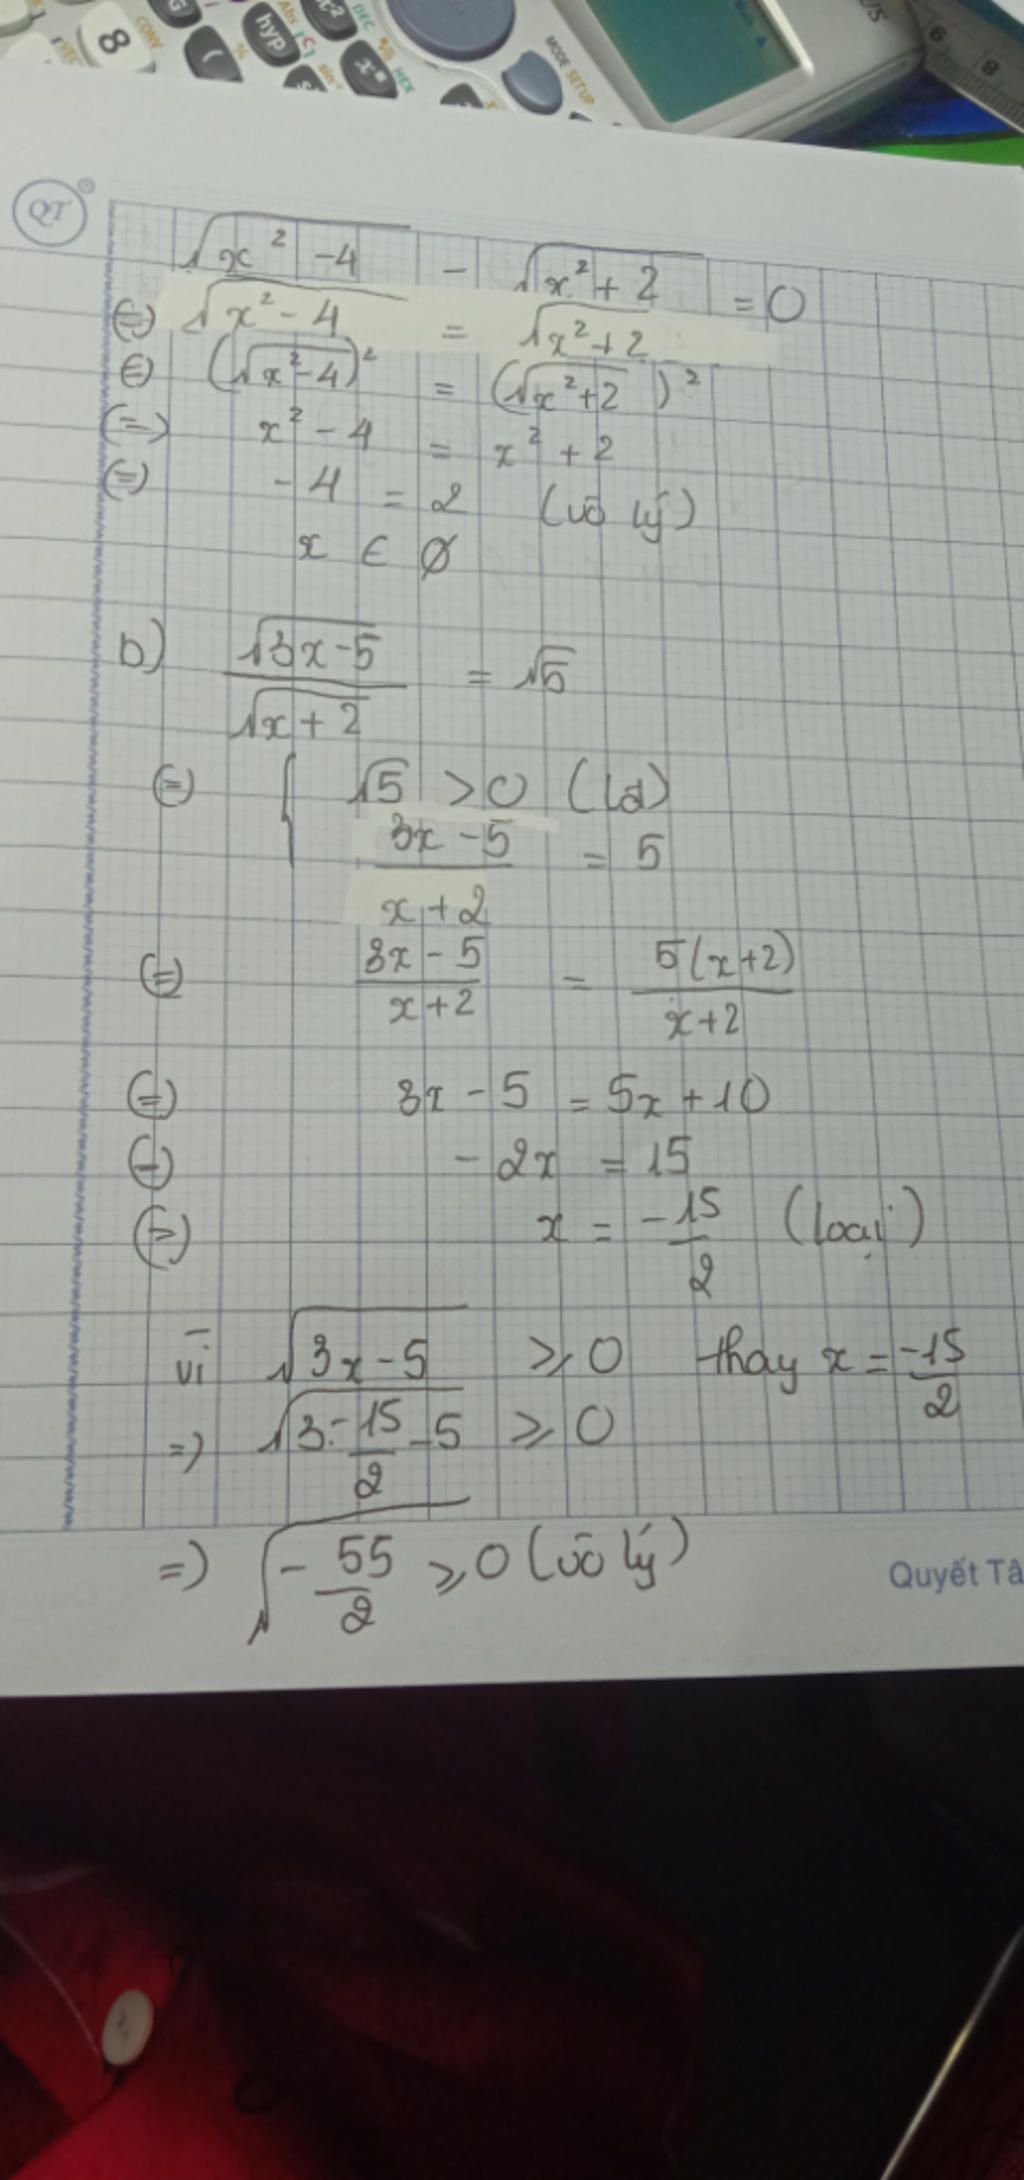 8
CONV
hyp
Abs
DEC
HEX
MODE SETUP
6
8
QT
√(x² - 4) - √(x² + 2) = 0
(=) √(x² - 4) = √(x² + 2)
(=) (√(x² - 4))² = (√(x² + 2))²
(=) x² - 4 = x² + 2
(=) -4 = 2 (vô lý)
x ∈ Ø
b) √(3x - 5) / √(x + 2) = √5
(=) { √5 > 0 (lđ)
(3x - 5) / (x + 2) = 5
(=) (3x - 5) / (x + 2) = 5(x + 2) / (x + 2)
(=) 3x - 5 = 5x + 10
(=) -2x = 15
(=) x = -15/2 (loại)
vì √(3x - 5) ≥ 0 thay x = -15/2
=) √(3.-15/2 - 5) ≥ 0
=) √(-55/2) ≥ 0 (vô lý)